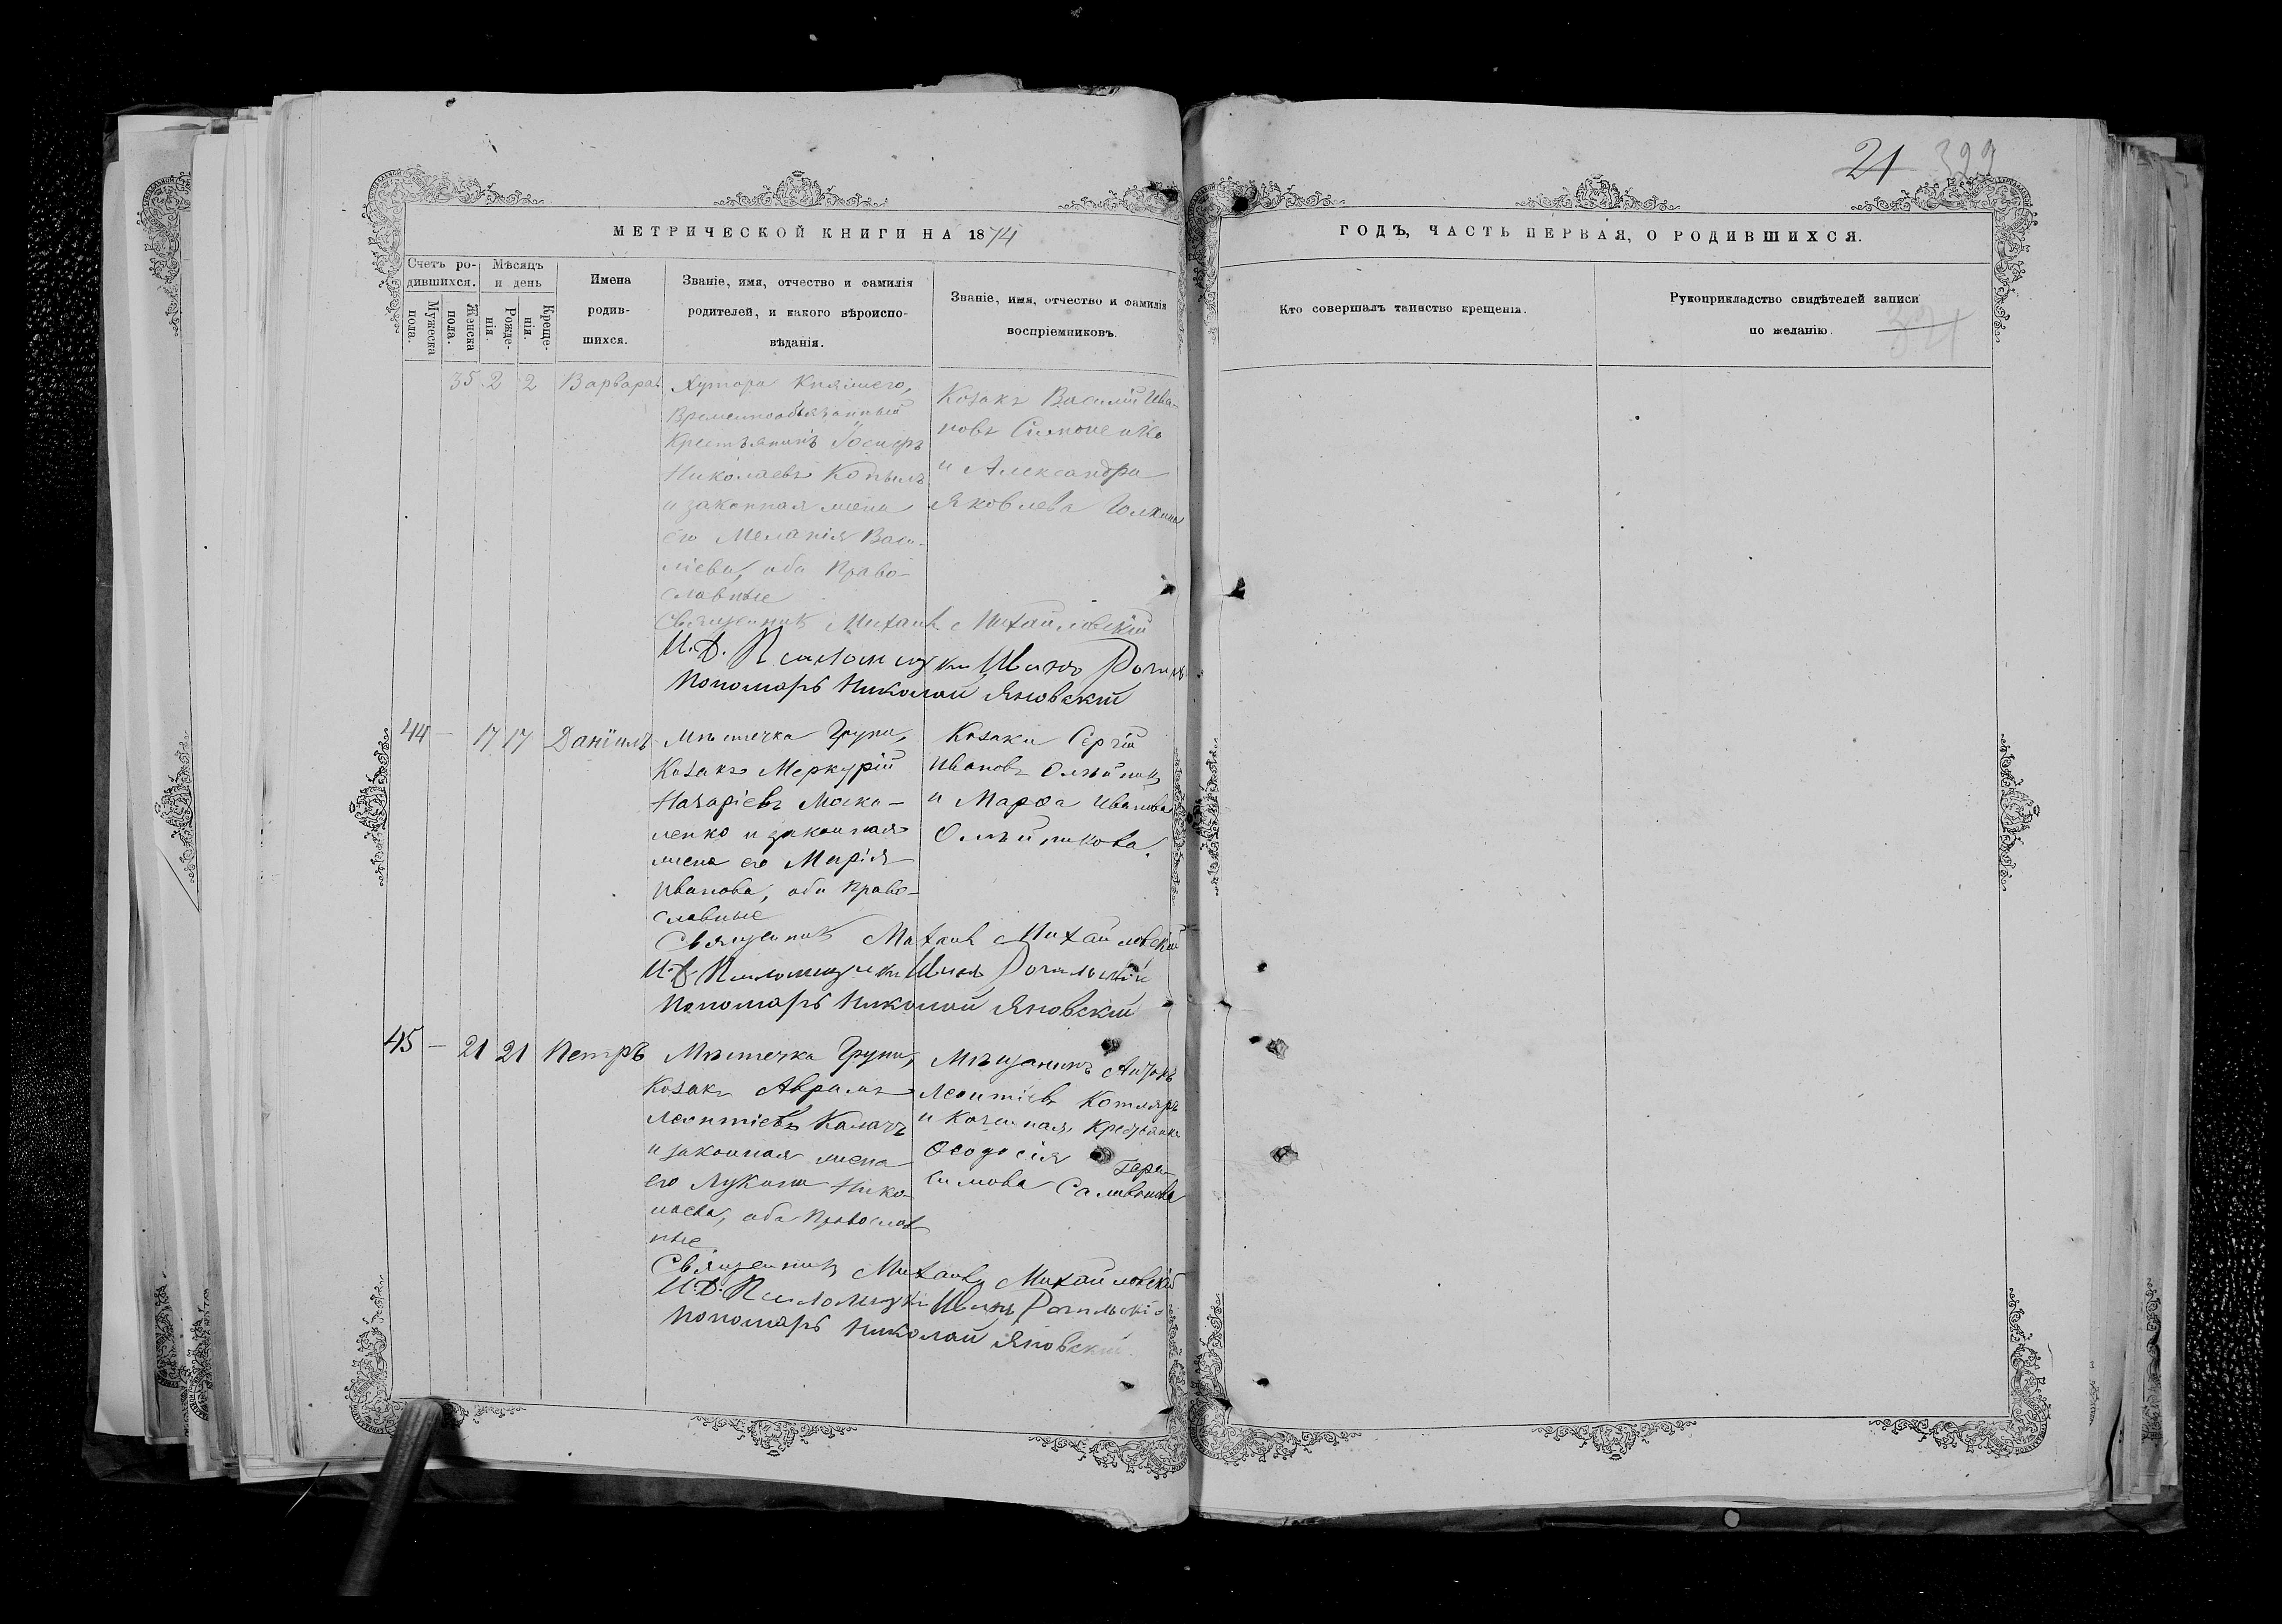 21 322
МЕТРИЧЕСКОЙ КНИГИ НА 1874
ГОДЪ, ЧАСТЬ ПЕРВАЯ, О РОДИВШИХСЯ.
Счетъ ро-
дившихся.
Мужеска
пола.
Женска
пола.
Мѣсяцъ
и день
Рожде-
нія.
Креще-
нія.
Имена
родив-
шихся.
Званіе, имя, отчество и фамилія
родителей, и какого вѣроиспо-
вѣданія.
Званіе, имя, отчество и фамилія
воспріемниковъ.
Кто совершалъ таинство крещенія.
Рукоприкладство свидѣтелей записи
по желанію.
321
35 2 2 Варвара
Хутора Княжего,
Временнообязанный
Крестьянинъ Іосифъ
Николаевъ Копылъ
и законная жена
его Меланія Васи-
ліева, оба Право-
славные
Козакъ Василій Ива-
новъ Симоненко
и Александра
Яковлева
Священникъ Михаилъ Михайловскій
И.Д. Псаломщика Иванъ
Пономарь Николай Яновскій
44 — 17 17 Даніилъ
Мѣстечка Груни,
Козакъ Меркурій
Назаріевъ Моска-
ленко и законная
жена его Марія
Иванова, оба Право-
славные
Козаки Сергій
Ивановъ Олѣйник
и Марѳа Иванова
Олѣйникова.
Священникъ Михаилъ Михайловскій
И.Д. Псаломщика Иванъ
Пономарь Николай Яновскій
45 — 21 21 Петръ
Мѣстечка Груни,
Козакъ Аврамъ
Леонтіевъ Калачъ
и законная жена
его Лукія Нико-
лаева, оба Православ
ные
Мѣщанинъ
Леонтіевъ Котляръ
и Казенная Крестьянка
Ѳеодосія Гера-
симова
Священникъ Михаилъ Михайловскій
И.Д. Псаломщика Иванъ
Пономарь Николай Яновскій